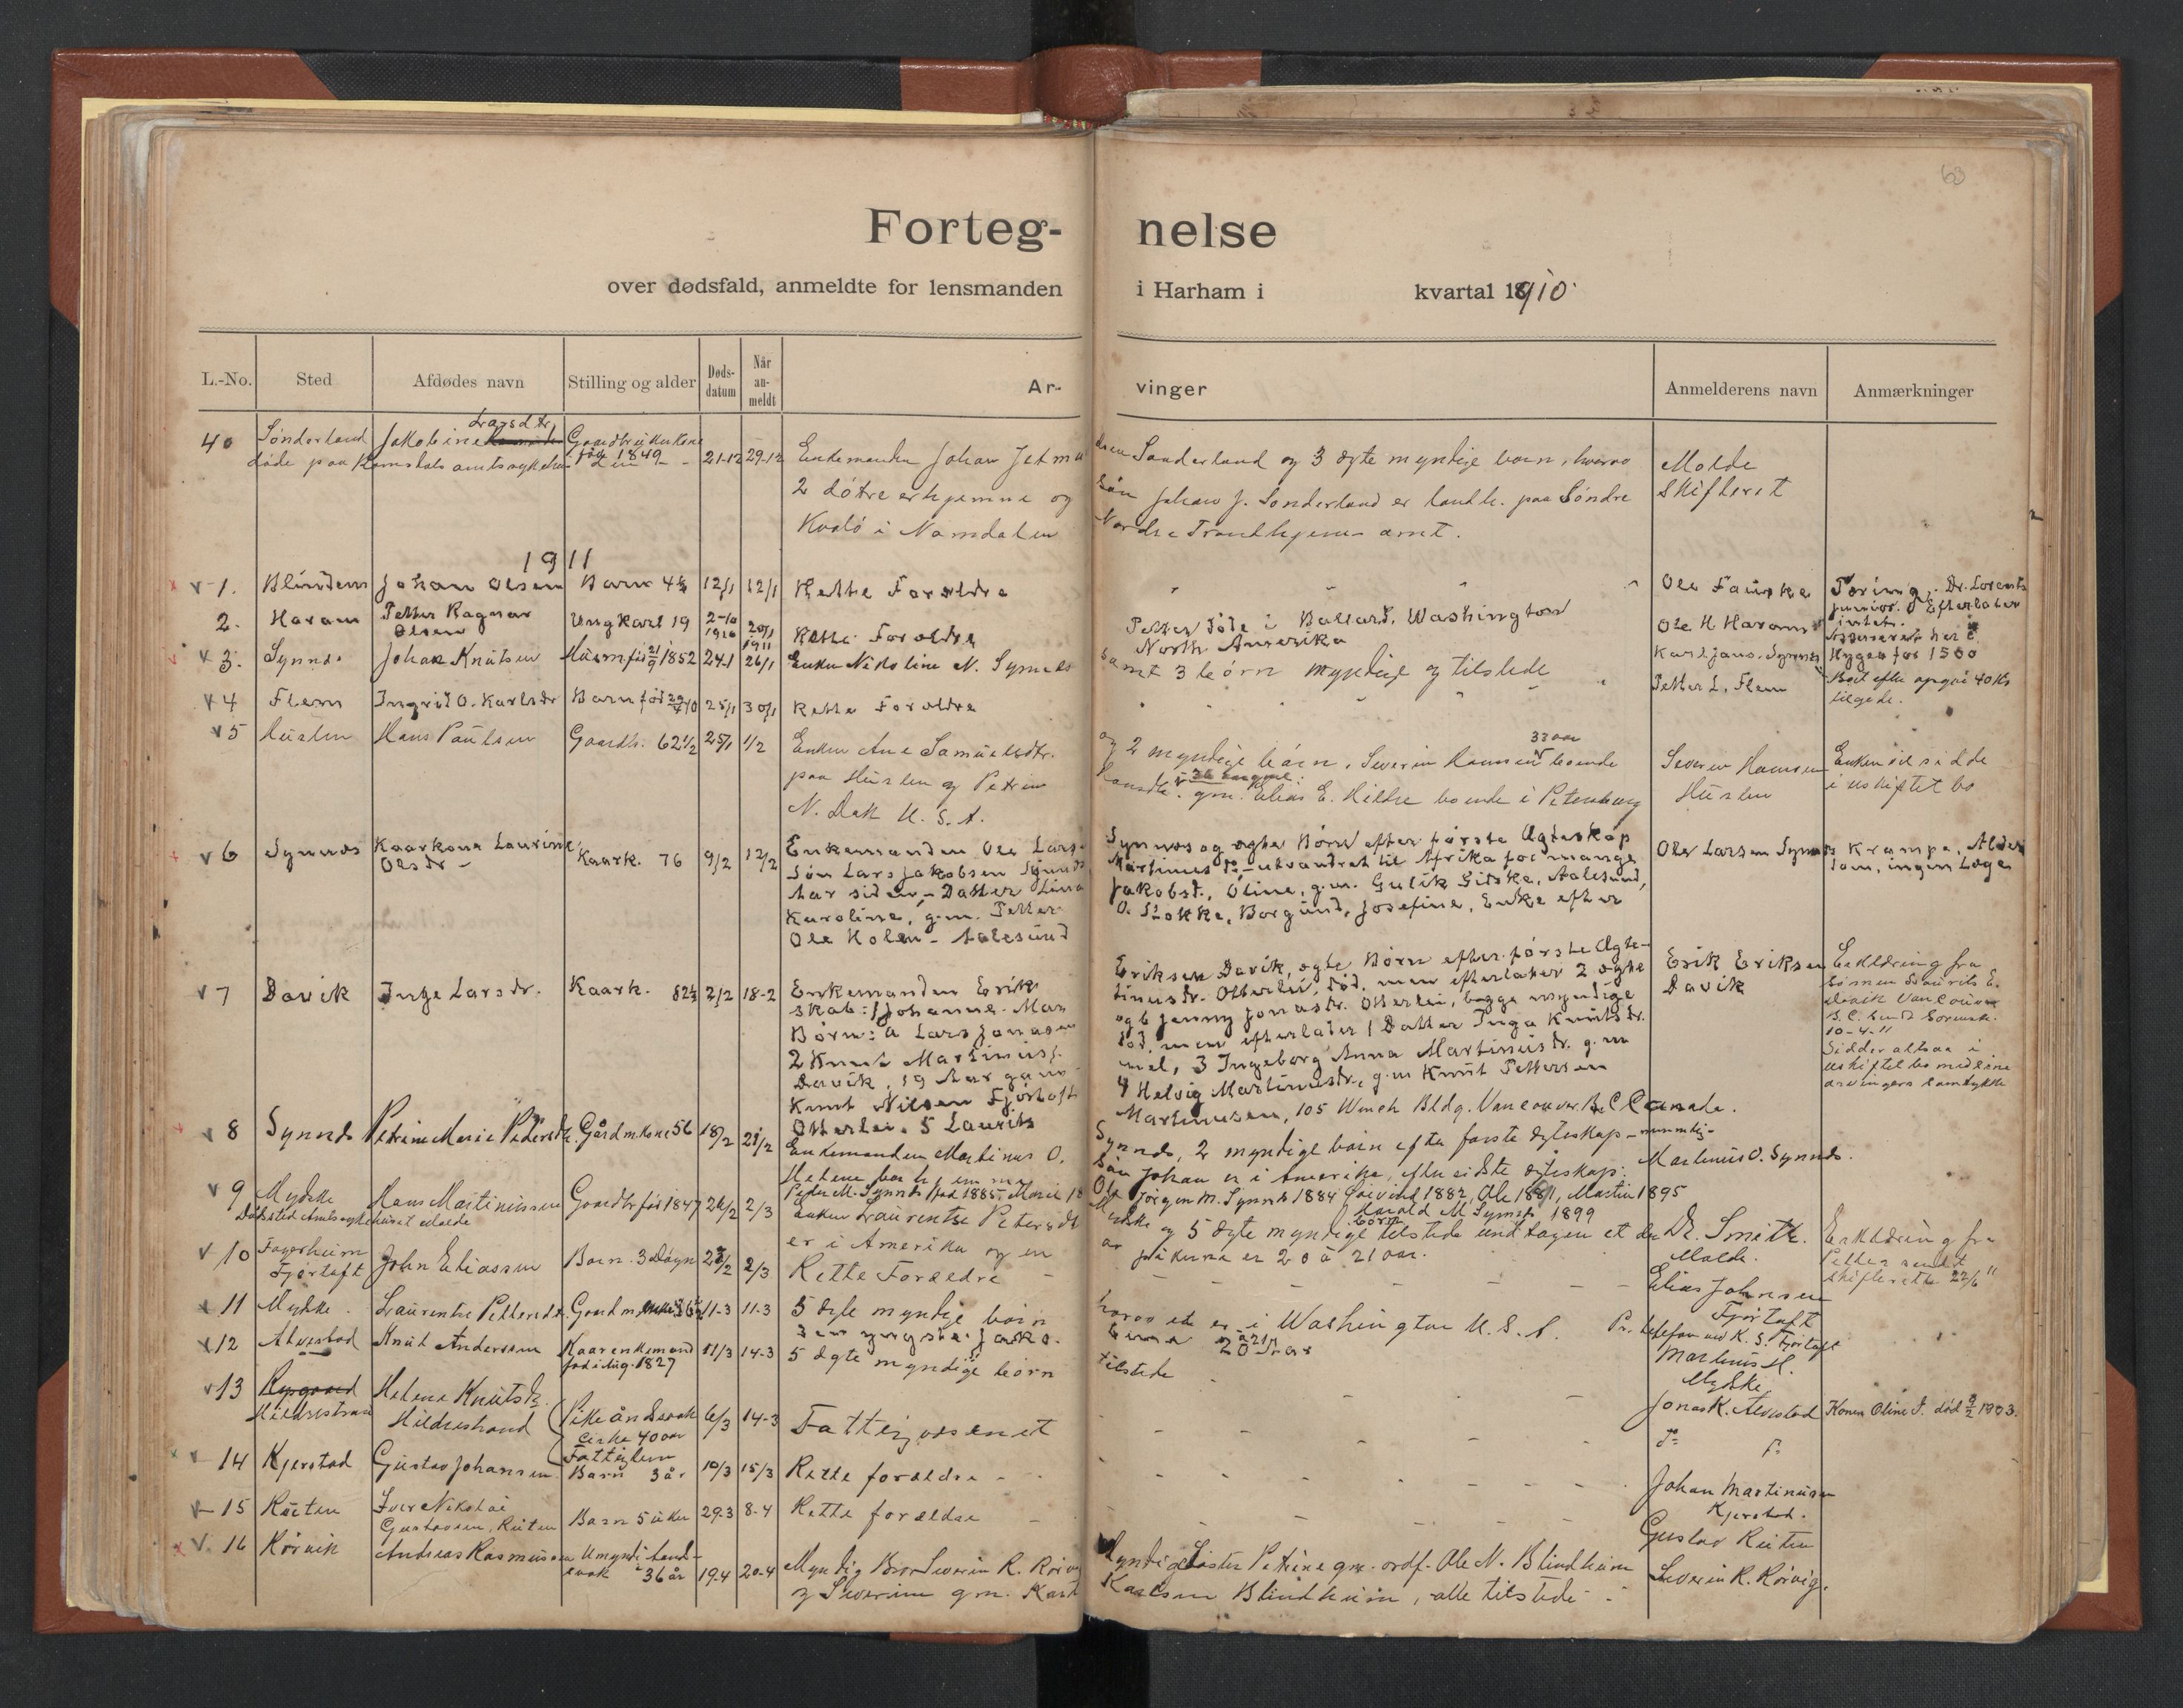 63
Forteg- nelse
over dødsfald, anmeldte for lensmanden i Harham i kvartal 1910
L.-No. Sted Afdødes navn Stilling og alder Døds-datum Når an-meldt Ar- vinger Anmelderens navn Anmærkninger
40 Sønderland Jakobine Larsdtr. Gaardbrukerkone
døde paa Romsdals amtssykehus født 1849 21-12 29-12 Enkemanden Johan Jetmundsen Sønderland og 3 ægte myndige børn, hvorav Molde
2 døtre er hjemme og søn Johan J. Sønderland er landh. paa Søndre Skifteret
Kvalø i Namdalen Nordre Trondhjems amt.
1911
1. Blindem Johan Olsen Barn 12/1 12/1 Rette Forældre Ole Fauske Tæring, Dr. Lorentz
junior. Efterlater
intet.
2. Haram Petter Ragnar Olsen Ungkarl 19 2-10 1910 20/1 1911 Rette Forældre Petter døde i Ballard, Washington
North Amerika Ole H. Harams Assureret her i
3. Synnes Johan Knutsen 21/9 1852 24-1 26/1 Enken Nikoline N. Synnes samt 3 børn myndige og tilstede Karl Johs. Synnes Hygea for 1500
4 Flem Ingrid O. Karlsdr Barn født 29/7 10 25/1 30/1 Rette Forældre Petter L. Flem Boet efter opgave 40 Kr
tilgode.
5 Huslen Hans Paulsen Gaardb. 62 1/2 25/1 1/2 Enken Ane Samuelsdtr. og 2 myndige børn, Severin Hansen 33 aar boende Severin Hansen Enken vil sidde
paa Huslen og Petrine Hansdtr. gm. Elias E. Hildre boende i Petersburg Huslen i uskiftet bo
N. Dak U. S. A.
6 Synnes Kaarkone Laurine Olsdr - Kaark. 76 9/2 12/2 Enkemanden Ole Larsen Synnes og ægte Børn efter første Ægteskap Ole Larsen Synnes Krampe, Alder
Søn Lars Jakobsen Synnes Martinus do, utvandret til Afrika for mange dom, ingen Læge
Aar siden, - Datter Lina Jakobsd., Oline, g.m. Gulik Giske, Aalesund,
Karoline, g.m. Petter O. Stokke, Borgund, Josefine, Enke efter
Ole Holen - Aalesund
7 Davik Inge Larsdr. Kaark. 82 1/2 2/2 18-2 Enkemanden Erik Eriksen Davik, ægte Børn efter første Ægte- Erik Eriksen Erklæring fra
skab: 1 Johanne Martinusdr. Otterlei, død, men efterlater 2 ægte Davik sømen Laurits E.
Børn: a Lars Jonasen og b Jenny Jonasdr. Otterlei, begge umyndige Davik Vancouver
2 Knut Martinus. død, men efterlater 1 Datter Inga Knutsdr. B.C. sendt Sorensk.
Davik, 19 Aar gammel, 3 Ingeborg Anna Martinusdr. g.m 10-4-11
Knut Nilsen Fjørtoft 4 Helvig Martinusdr., g.m Knut Pettersen Sidder altsaa i
Otterlei. 5 Laurits Martinusen, 105 Winch Bldg. Vancouver. B.C Canada. uskiftet bo med sine
arvingers samtykke
8 Synnes Petrine Marie Pedersdtr. Gårdm.kone 56 18/2 21/2 Enkemanden Martinus O. Synnes, 2 myndige børn efter første ægteskap Martinus O. Synnes.
søn Johan er i Amerika, efter sidste ægteskap:
Peder M. Synnes født 1885, Marie Jørgen M. Synnes 1884 1882, Ole 1891, Martin 1895
Harald M Synnes 1899
9 Mydske Hans Martinussen Gaardbr født 1847 26/2 2/3 Enken Laurentse Petersdt Mydske og 5 ægte myndige børn tilstede undtagen et der Dr. Smith. Erklæring fra
Dødsted Amtssykehuset Molde er i Amerika og en piken er 20 à 21 aar. Molde. sendt
Skifteretten 22/6 11
10 Fagerheim Fjørtoft John Eliassen Barn 3 Døgn 2/3 Rette Forældre Elias Johnsen
Fjørtoft
11 Mydske. Laurentse Pettersdt. Gaardm. enke 11-3 11-3 5 ægte myndige børn hvorav et er i Washington U. S. A. Pr. telefon ved K. S. Fjørtoft
den yngste Jako-bina 20 à 21 Aar Martinus H.
Mydske
12 Alvestad Knut Andersen Kaarenkemand født i Aug. 1827 11/3 14-3 5 ægte myndige børn tilstede Jonas K. Alvestad Konen Oline J. død 9/2 1903.
13 Hildrestrand Helene Knutsdr. Hildrestrand Pike åndssvak cirka 40 aar Fattiglem 6/3 14-3 Fattigvæsenet
14 Kjerstad Gustav Johansen Barn 3 år 10/3 15/3 Rette forældre Johan Martinusen
Kjerstad.
15 Røiten Iver Nikolai Gustavsen, Røiten Barn 5 uker 29-3 8-4 Rette forældre Gustav Røiten
16 Rørvik Andreas Rasmussen Umyndig Aand-svak 36 år 19-4 20-4 Myndig Bror Severin R. Rørvig Myndig Søster Petrine gm. ordf. Ole N. Blindheim Severin R. Rørvig.
og Severine gm. Karl Karlsen Blindheim, alle tilstede